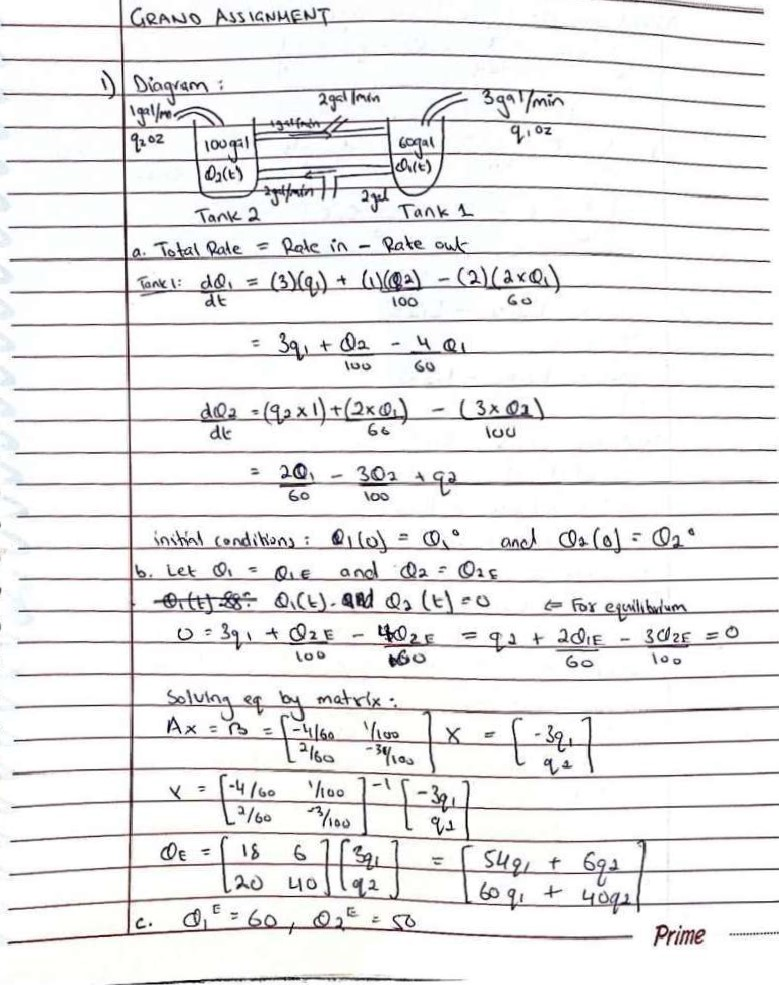 GRAND ASSIGNMENT
1) Diagram :
2gal/min
3gal/min
1gal/mi
1gal/min
q₂oz
q₁oz
100gal
60gal
Q₂(t)
Q₁(t)
2gal/min
2gal
Tank 2
Tank 1
a. Total Rate = Rate in - Rate out
Tank1: dQ₁/dt = (3)(q₁) + (1)(Q2)/100 - (2)(2×Q₁)/60
= 3q₁ + Q2/100 - 4 Q1/60
dQ2/dt = (q2×1)+(2×Q₁)/60 - (3×Q2)/100
= 2Q₁/60 - 3Q2/100 + q2
initial conditions : Q1(0) = Q₁° and Q2(0) = Q2°
b. Let Q₁ = Q1E and Q2 = Q2E
Q₁(t) Q₁(t). and Q2(t) = 0 ⇐ For equilibrium
0 = 3q₁ + Q2E/100 - 4Q2E/60 = q2 + 2Q1E/60 - 3Q2E/100 = 0
Solving eq by matrix :
Ax = B = [-4/60 1/100] X = [-3q₁]
[2/60 -3/100] [q2]
X = [-4/60 1/100]⁻¹ [-3q₁]
[2/60 -3/100] [q2]
QE = [18 6] [3q₁] = [54q₁ + 6q2]
[20 40] [q2] [60q₁ + 40q2]
c. Q₁ᴱ = 60, Q2ᴱ = 50
Prime